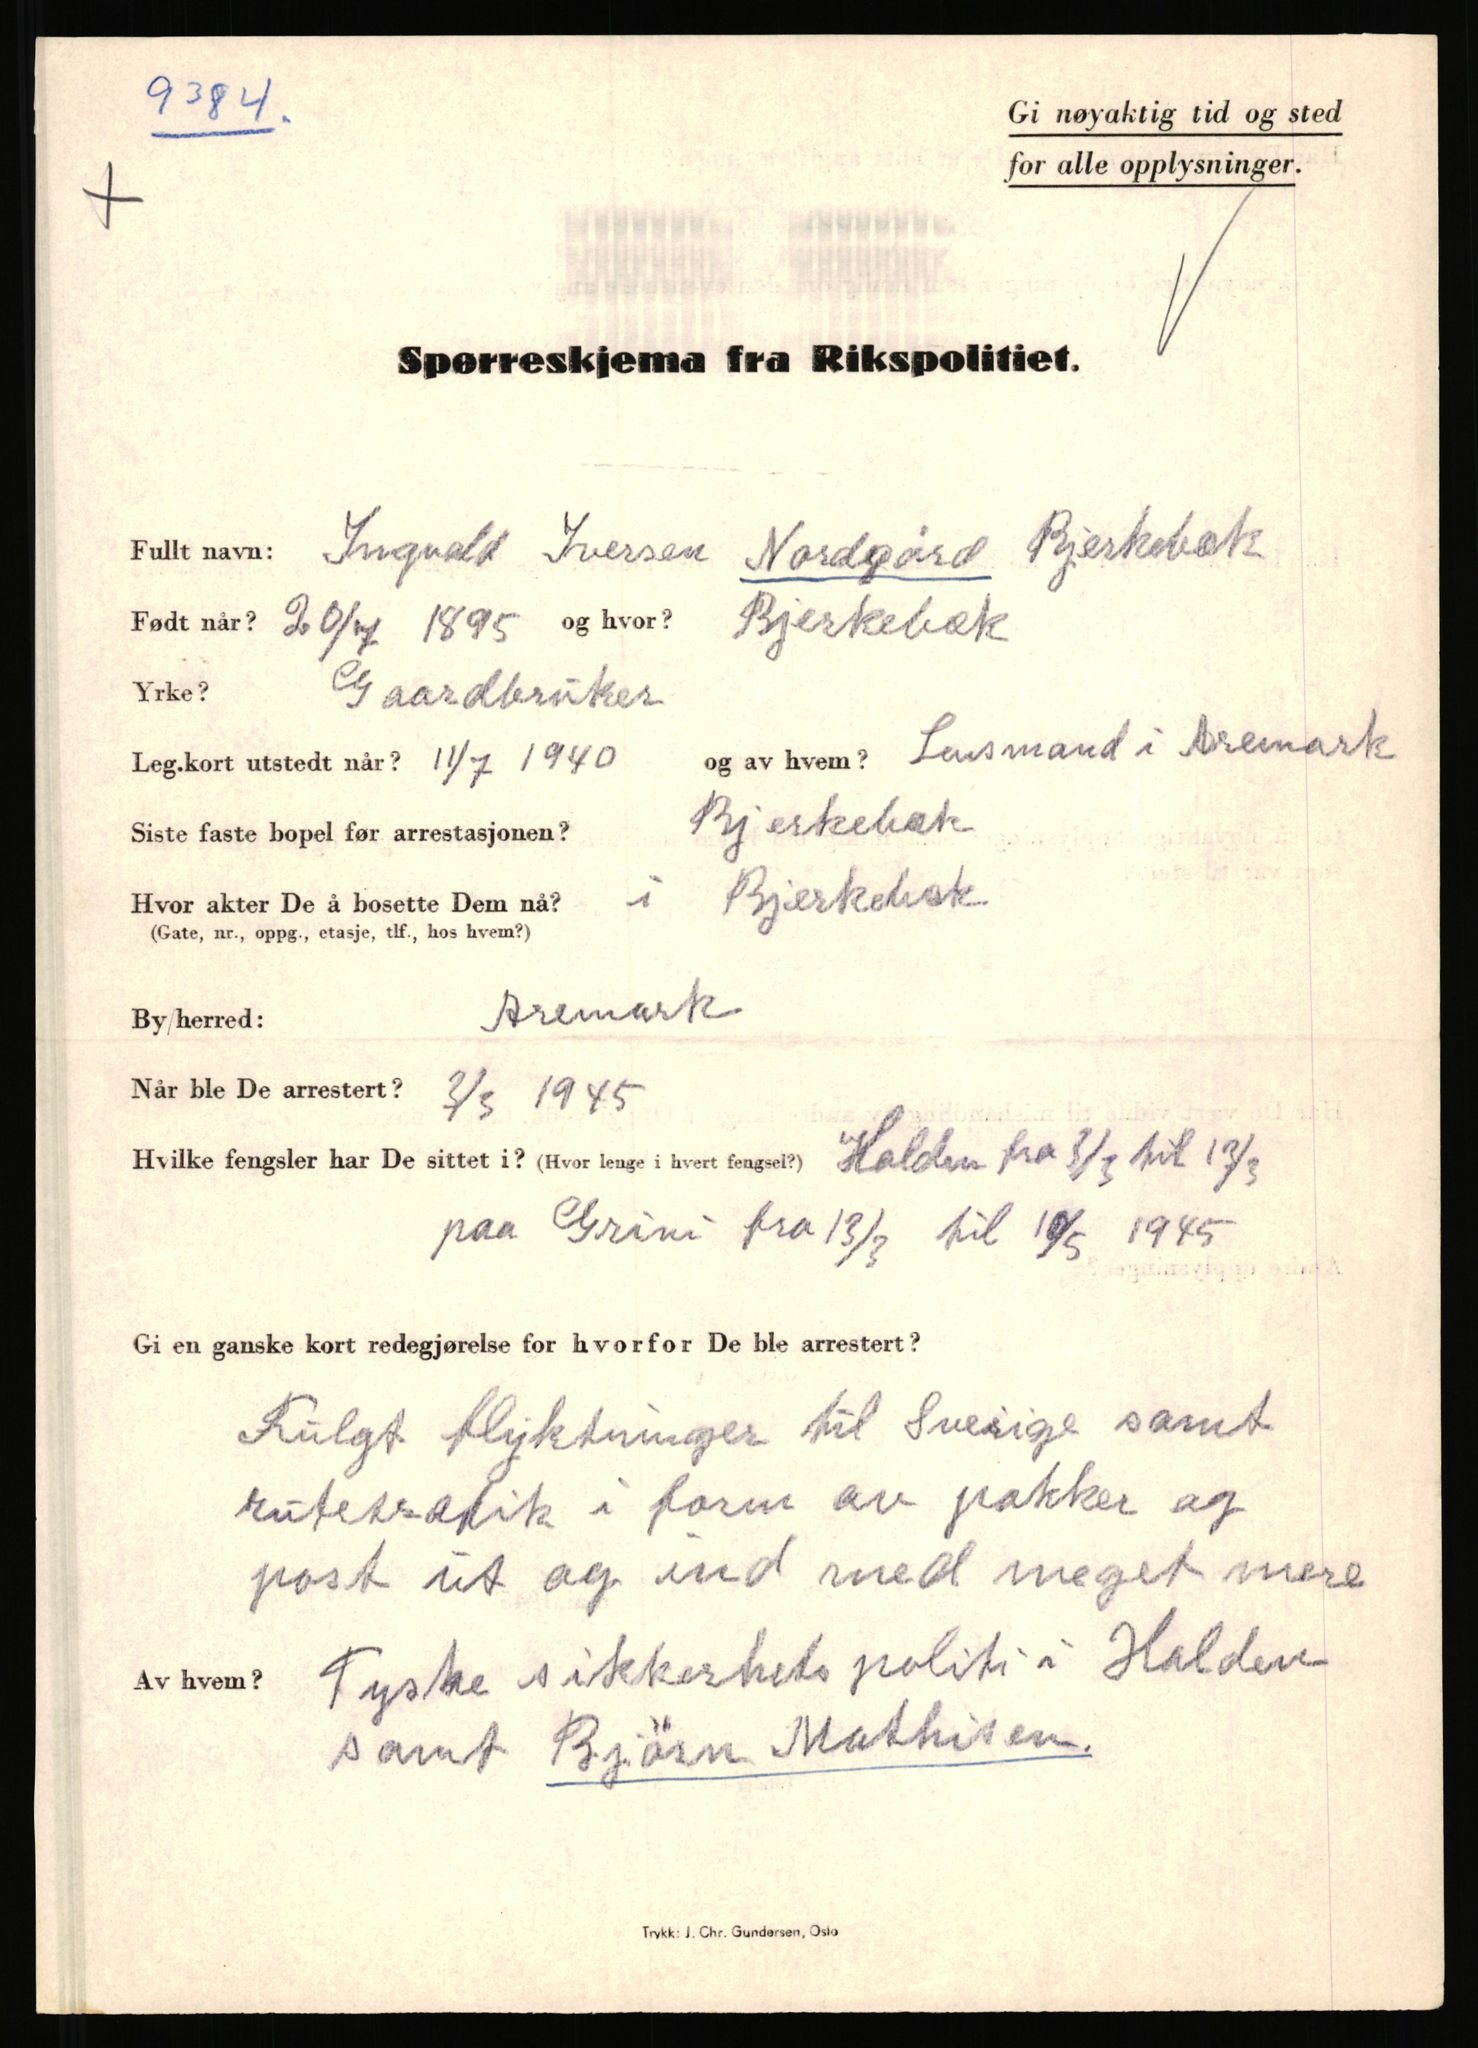 9384.
Gi nøyaktig tid og sted
for alle opplysninger.
Spørreskjema fra Rikspolitiet.
Fullt navn: Ingvald Iversen Nordgård Bjerkebæk
Født når? 20/7 1895 og hvor? Bjerkebæk
Yrke? Gaardbruker
Leg.kort utstedt når? 11/7 1940 og av hvem? Lensmand i Aremark
Siste faste bopel før arrestasjonen? Bjerkebæk
Hvor akter De å bosette Dem nå? i Bjerkebæk
(Gate, nr., oppg., etasje, tlf., hos hvem?)
By/herred: Aremark
Når ble De arrestert? 3/3 1945
Hvilke fengsler har De sittet i? (Hvor lenge i hvert fengsel?) Halden fra 3/3 til 13/3
paa Grini fra 13/3 til 10/5 1945
Gi en ganske kort redegjørelse for hvorfor De ble arrestert?
Fulgt flyktninger til Sverige samt
rutetrafik i form av pakker og
post ut og ind med meget mere
Av hvem? Tyske sikkerhets politi i Halden
samt Björn Mathisen.
Trykk: J. Chr. Gundersen, Oslo